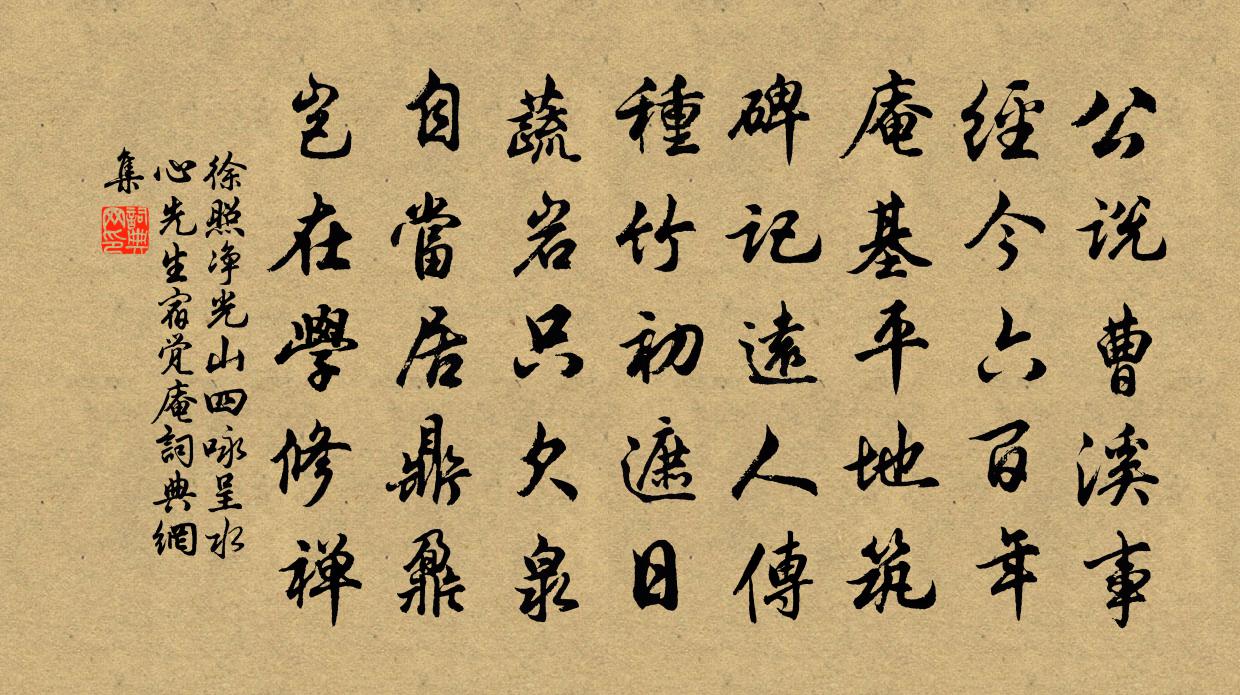 公説曹溪事
經今六百年
庵基平地筑
碑記遠人傳
種竹初遮日
蔬岩只欠泉
自當居鼎鼐
豈在學修禅
徐照净光山四咏呈水
心先生宿觉庵詞典網
集
詞典
网印